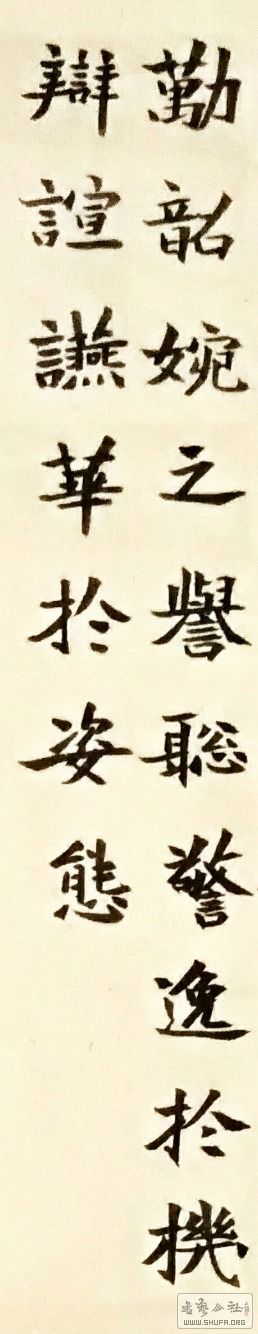 勱韶婉之譽聡警逸扵機
辯諠讌華扵姿態
书艺公社
WWW.SHUFA.ORG